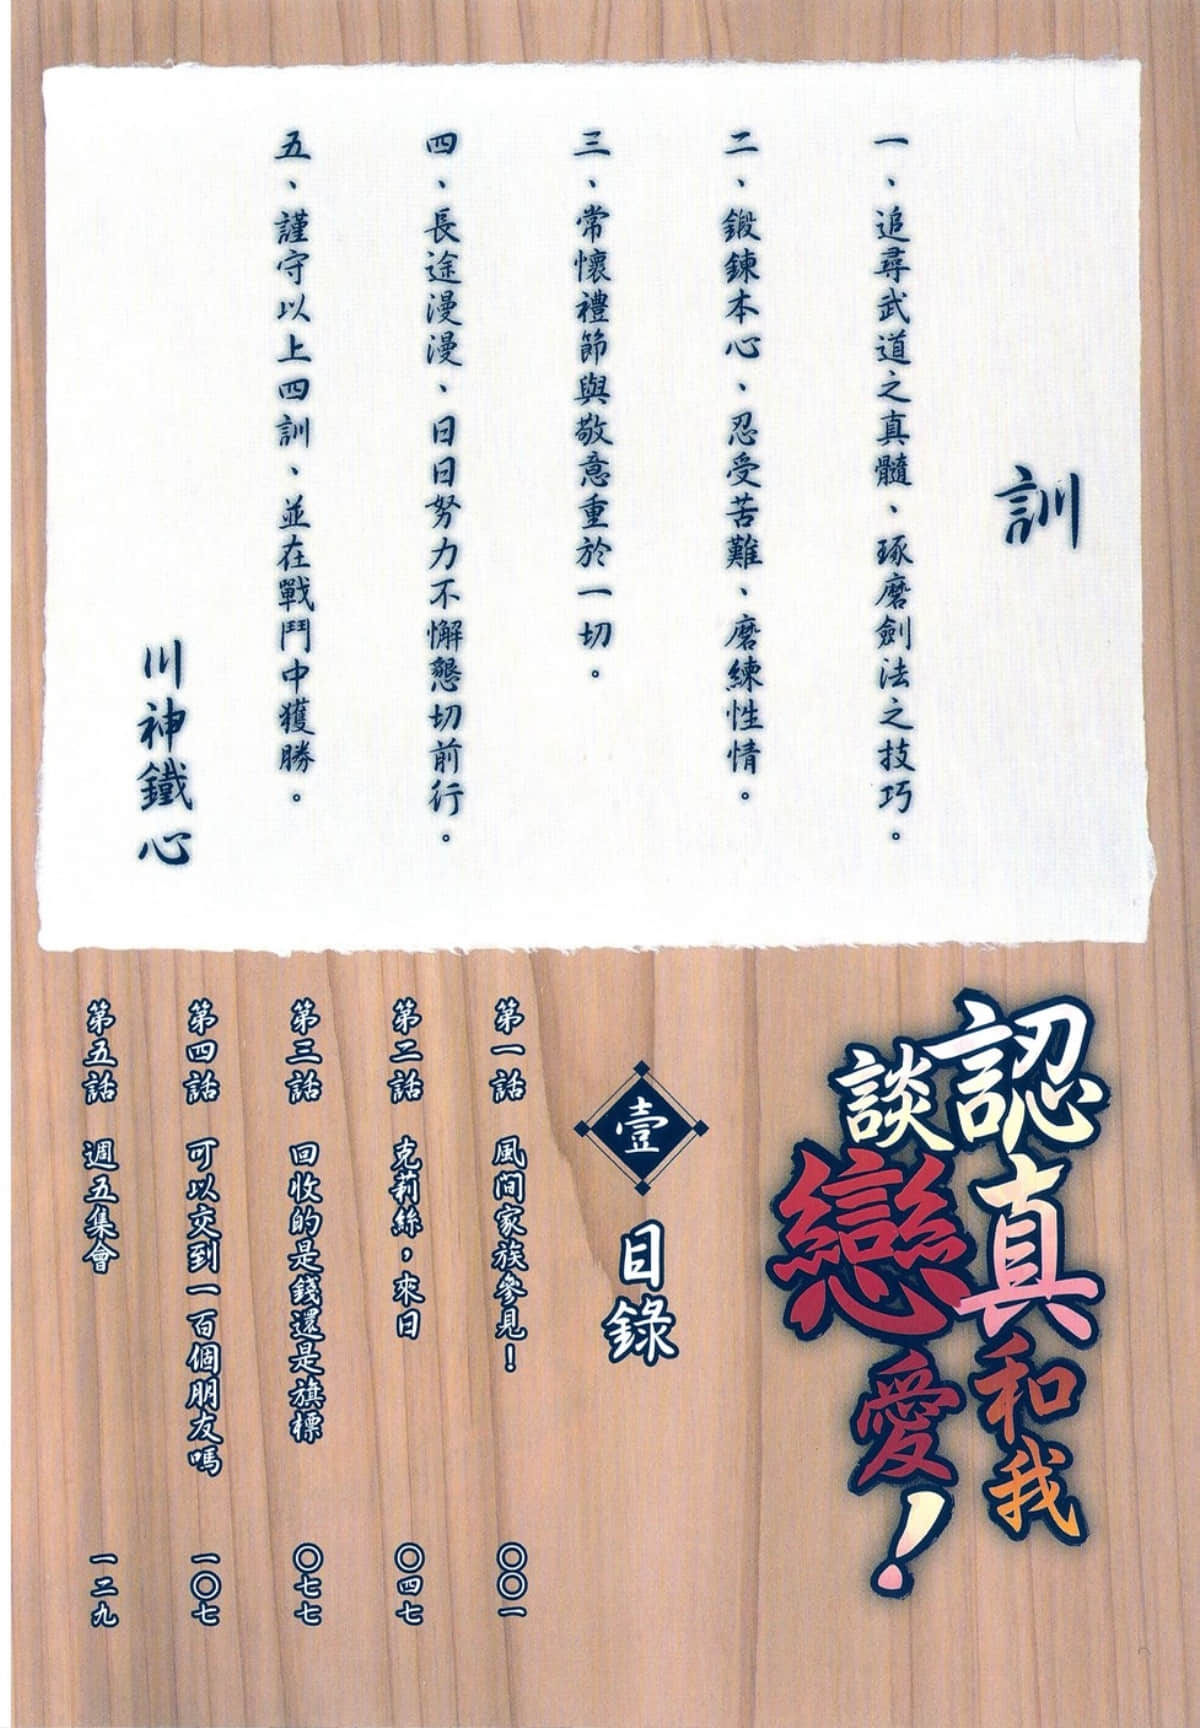 訓
一、追尋武道之真髓、琢磨劍法之技巧。
二、鍛鍊本心、忍受苦難、磨練性情。
三、常懷禮節與敬意重於一切。
四、長途漫漫、日日努力不懈懇切前行。
五、謹守以上四訓、並在戰鬥中獲勝。
川神鐵心
認真和我
談戀愛！
壹 目錄
第一話 風間家族參見！ 〇〇一
第二話 克莉絲，來日 〇四七
第三話 回收的是錢還是旗標 〇七七
第四話 可以交到一百個朋友嗎 一〇七
第五話 週五集會 一二九